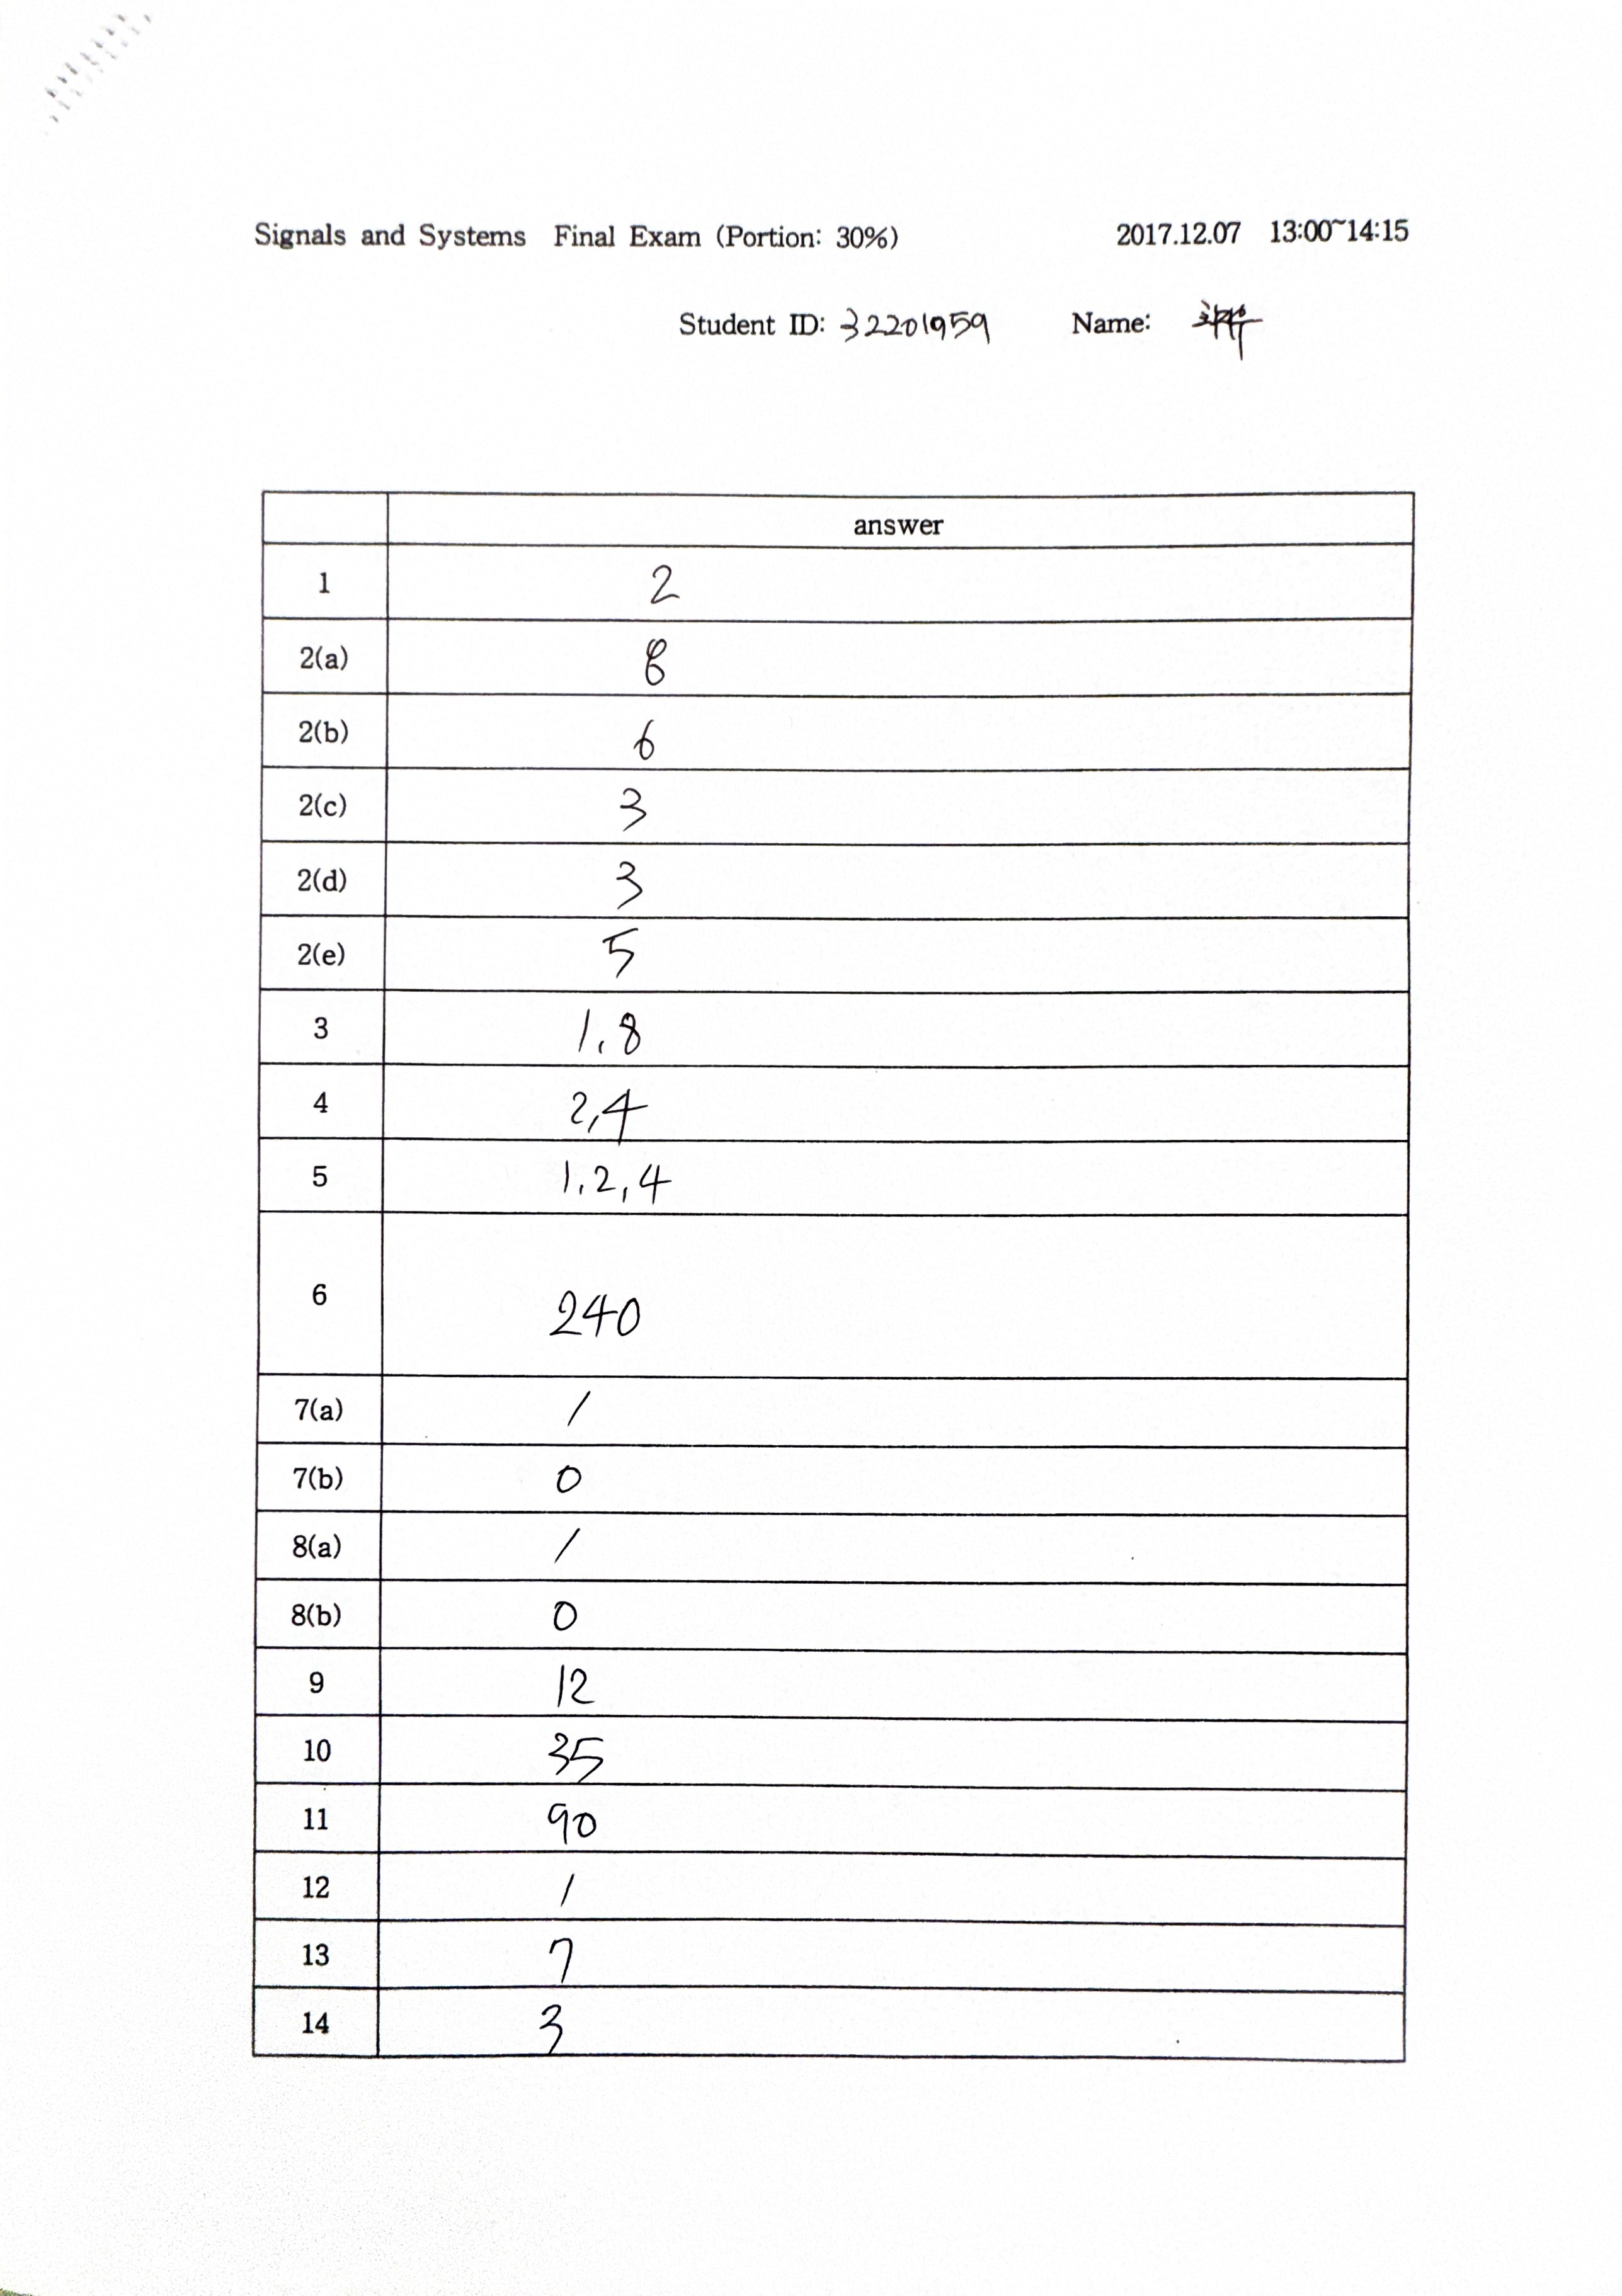 Signals and Systems Final Exam (Portion: 30%) 2017.12.07 13:00~14:15
Student ID: 32201959 Name:
answer
1 2
2(a) 8
2(b) 6
2(c) 3
2(d) 3
2(e) 5
3 1,8
4 2,4
5 1,2,4
6 240
7(a) /
7(b) 0
8(a) /
8(b) 0
9 12
10 35
11 90
12 1
13 7
14 3